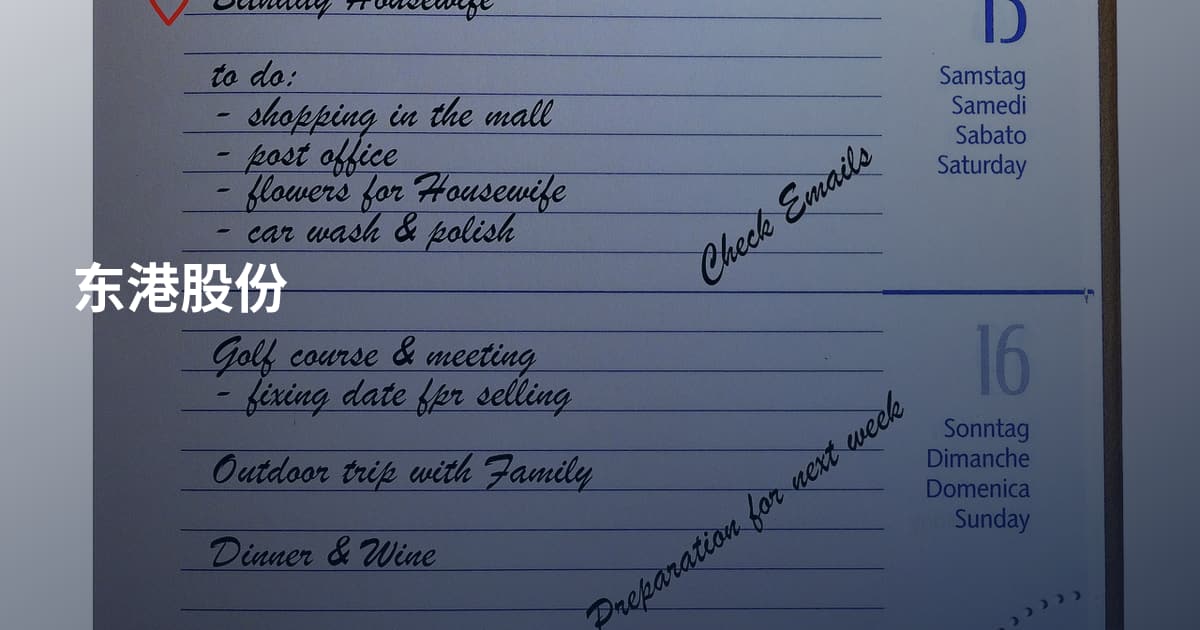 Birthday Housewife
15
to do:
Samstag
- shopping in the mall
Samedi
- post office
Sabato
- flowers for Housewife
Saturday
- car wash & polish
Check Emails
东港股份
Golf course & meeting
16
- fixing date fpr selling
Sonntag
Outdoor trip with Family
Dimanche
Domenica
Sunday
Dinner & Wine
Preparation for next week